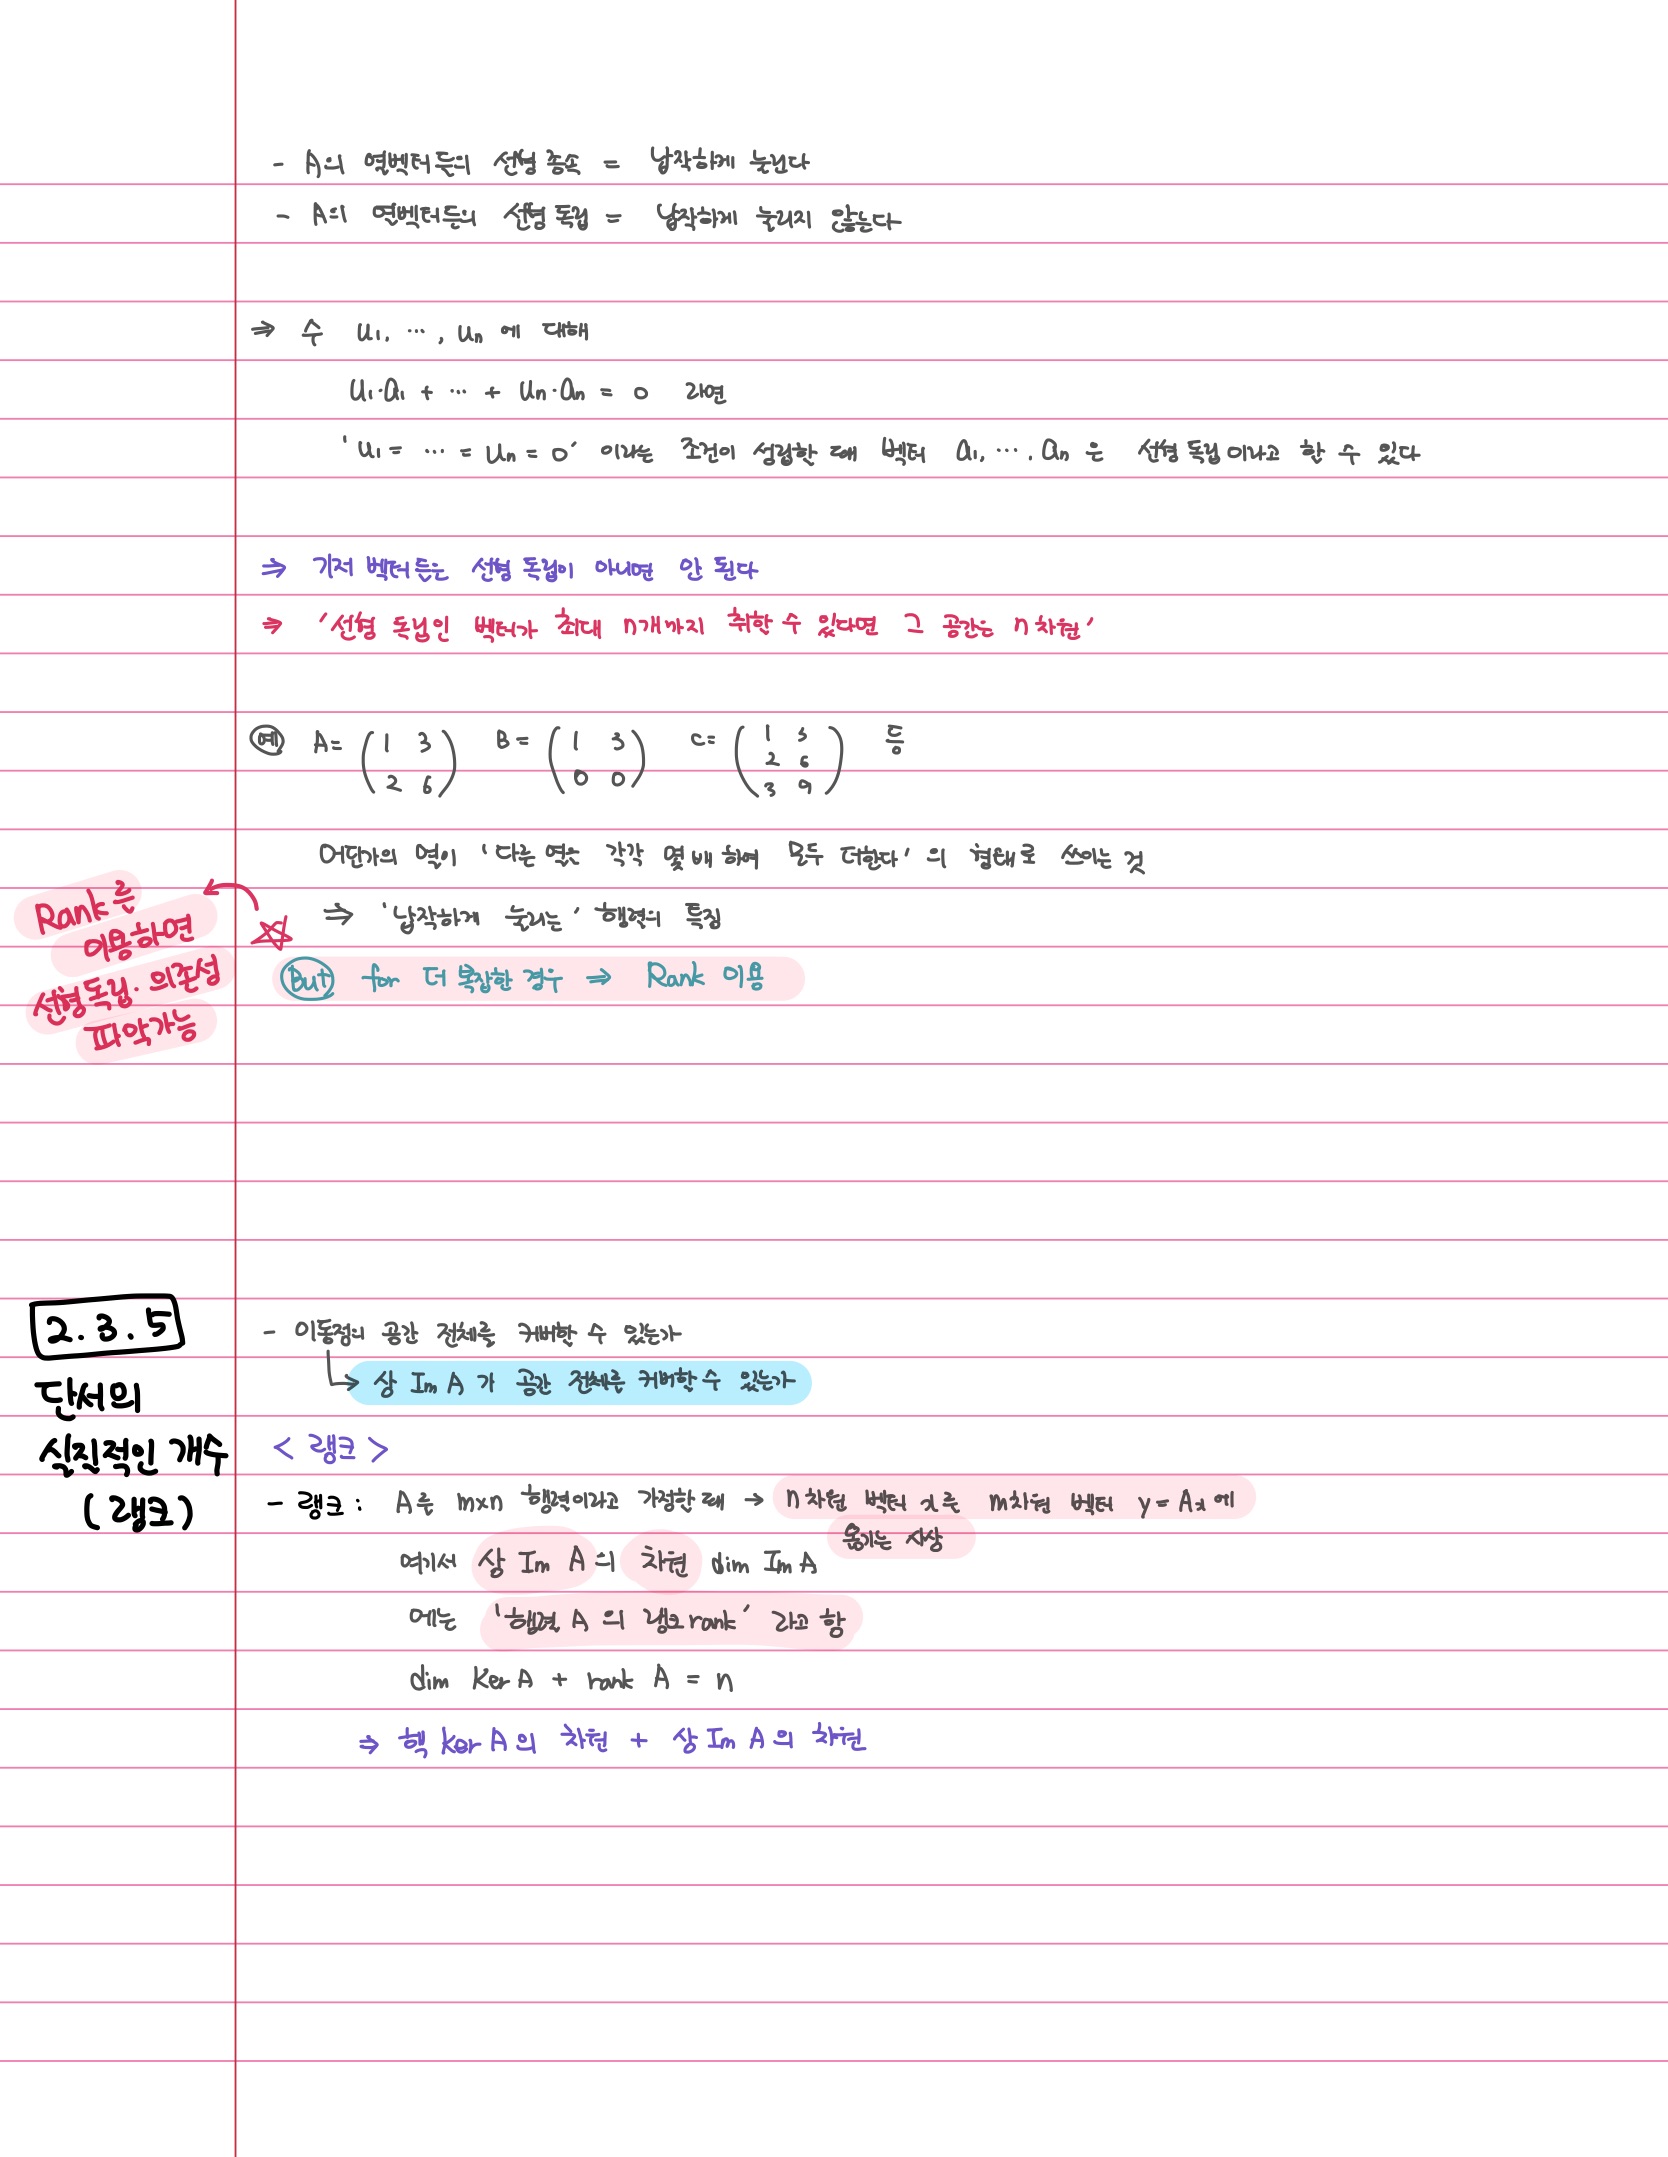 - A의 열벡터들의 선형 종속 = 납작하게 눌린다
- A의 열벡터들의 선형 독립 = 납작하게 눌리지 않는다
⇒ 수 u₁, ⋯, uₙ 에 대해
u₁·a₁ + ⋯ + uₙ·aₙ = 0 라면
'u₁ = ⋯ = uₙ = 0' 이라는 조건이 성립할 때 벡터 a₁, ⋯, aₙ 은 선형 독립이라고 할 수 있다
⇒ 기저 벡터들은 선형 독립이 아니면 안 된다
⇒ '선형 독립인 벡터가 최대 n개까지 취할 수 있다면 그 공간은 n차원'
예 A= (1 3 B= (1 3) C= (1 3 등
2 6) 0 0 2 6
3 9)
어딘가의 열이 '다른 열을 각각 몇 배 하여 모두 더한다' 의 형태로 쓰이는 것
⇒ '납작하게 눌리는' 행렬의 특징
☆ But for 더 복잡한 경우 ⇒ Rank 이용
Rank를
이용하면
선형독립·의존성
파악가능
2.3.5
단서의
실질적인 개수
(랭크)
- 이동점의 공간 전체를 커버할 수 있는가
↳ 상 Im A 가 공간 전체를 커버할 수 있는가
< 랭크 >
- 랭크 : A를 m×n 행렬이라고 가정할 때 → n차원 벡터 x를 m차원 벡터 y=Ax에
옮기는 사상
여기서 상 Im A의 차원 dim Im A
에는 '행렬 A의 랭크rank' 라고 함
dim Ker A + rank A = n
⇒ 핵 ker A의 차원 + 상 Im A의 차원